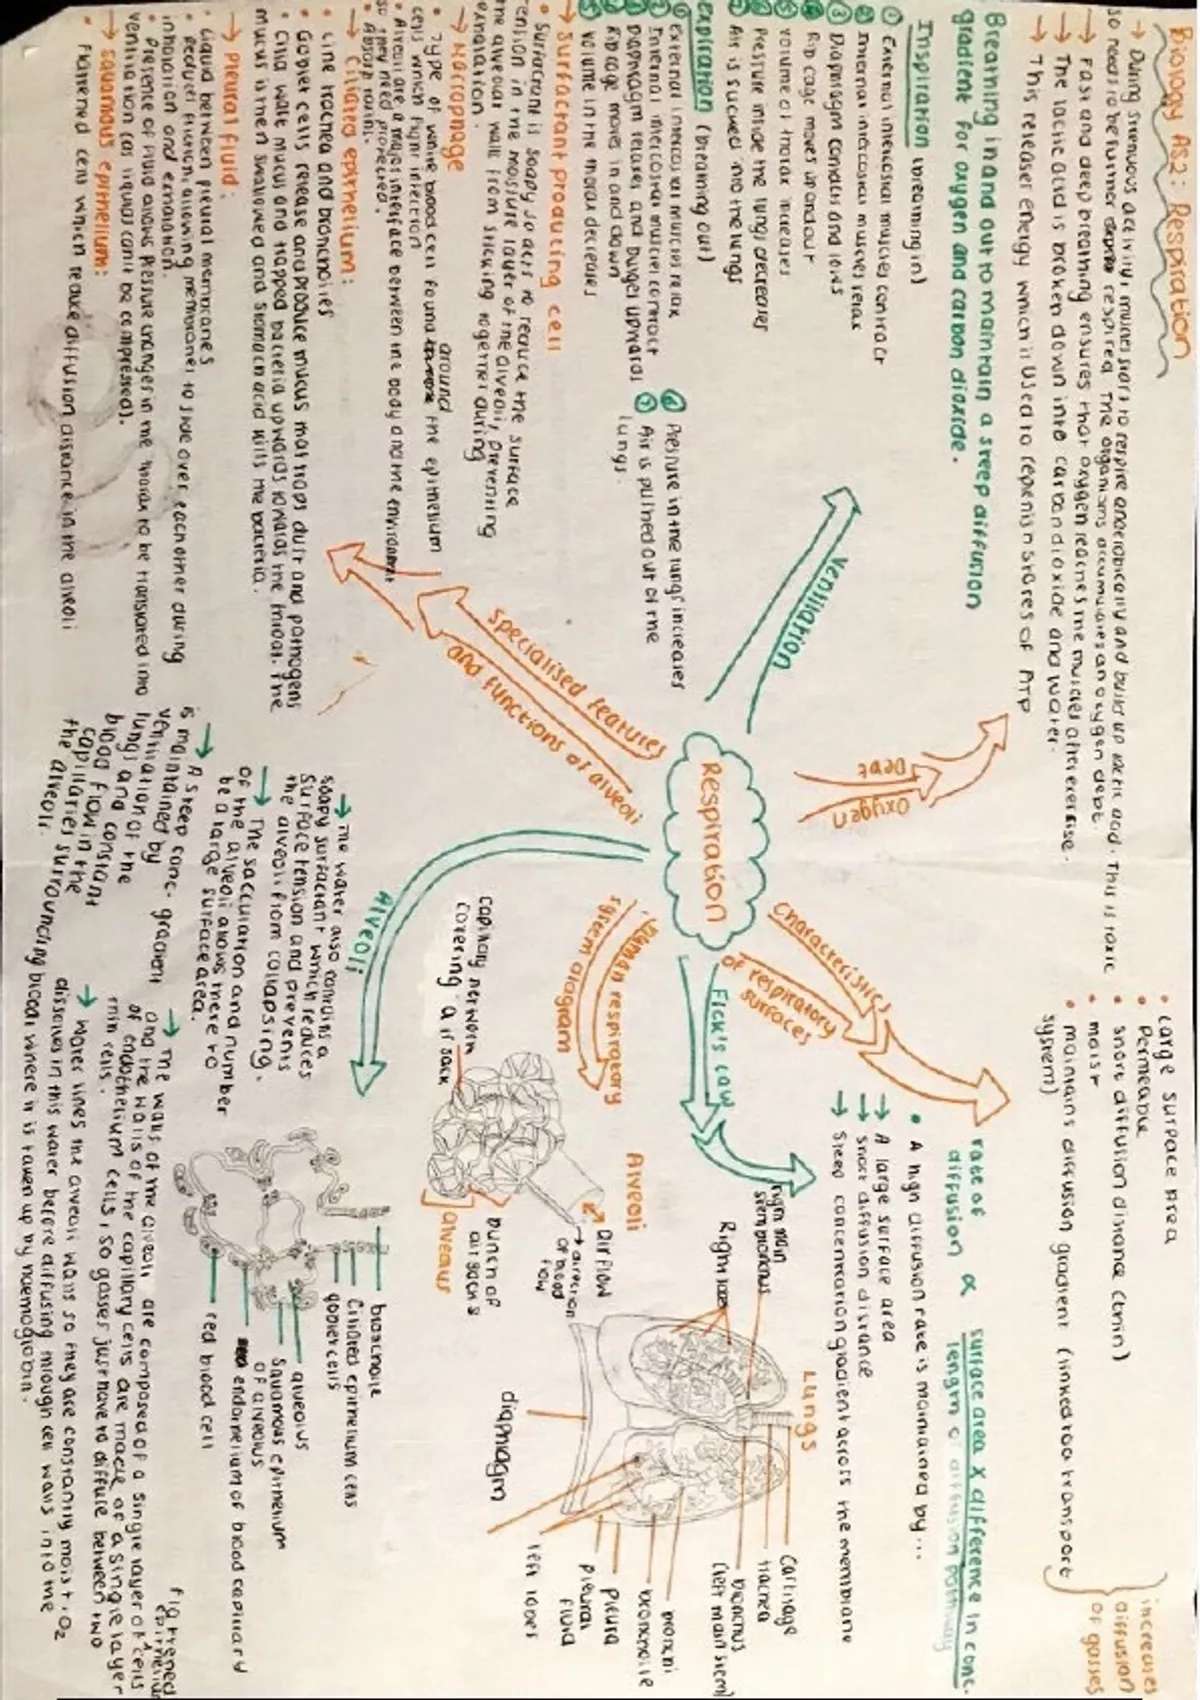 Biology AS2: Respiration
→ During strenuous activity muscles starts to respire anaerobically and build up lactic acid. This is toxic
so needs to be further respired. The organisms accumulates an oxygen debt.
→ Fast and deep breathing ensures that oxygen reaches the muscles after exercise.
→ The lactic acid is broken down into carbon dioxide and water.
→ This releases energy which is used to replenish stores of ATP
Oxygen
Debt
Breathing in and out to maintain a steep diffusion
gradient for oxygen and carbon dioxide.
Inspiration (breathing in)
① External intercostal muscles contract
② Internal intercostal muscles relax
③ Diaphragm contracts and lowers
④ Rib cage moves up and out
⑤ volume of thorax increases
⑥ Pressure inside the lungs decreases
⑦ Air is sucked into the lungs
expiration (breathing out)
① External intercostal muscles relax
② Internal intercostal muscles contract
③ Diaphragm relaxes and bulges upwards
④ Rib cage moves in and down
⑤ volume in the thorax decreases
⑥ Pressure in the lungs increases
⑦ Air is pulled out of the
lungs.
Ventilation
Respiration
characteristics
of respiratory
surfaces
• Large surface area
• Permeable
• short diffusion distance (thin)
• moist
• maintains diffusion gradient (linked to a transport
system)
increases
diffusion
of gasses
Fick's Law
rate of
diffusion ∝ surface area x difference in conc.
length of diffusion pathway
• A high diffusion rate is maintained by...
→ A large surface area
→ short diffusion distance
→ Steep concentration gradient across the membrane
specialised features
and functions of alveoli
→ Surfactant producing cell
• Surfactant is soapy so acts to reduce the surface
tension in the moisture layer of the alveoli, preventing
the alveolar wall from sticking together during
exhalation.
→ Macrophage
• Type of white blood cell found around the epithelium
cells which fight infection
• Alveoli are a major interface between the body and the environment
so they need protected.
• Absorb toxins.
→ Ciliated epithelium:
• Line trachea and bronchioles
• Goblet cells release and produce mucus that traps dust and pathogens
• Cilia waft mucus and trapped bacteria upwards towards the throat. The
mucus is then swallowed and stomach acid kills the bacteria.
→ Pleural fluid:
• Liquid between pleural membranes
• Reduces friction, allowing membranes to slide over each other during
inhalation and exhalation.
• Presence of fluid allows pressure changes in the thorax to be translated into
ventilation (as liquids can't be compressed).
→ squamous epithelium:
• Flattened cells which reduce diffusion distance in the alveoli
human respiratory
system diagram
Lungs
right main
stem bronchus
Right lobes
Cartilage
trachea
bronchus
(left main stem)
bronchi
bronchiole
Pleura
pleural
fluid
left lobes
diaphragm
Alveoli
Air flow
→ direction
of blood
flow
bunch of
air sacks
alveolus
capillary network
covering air sack
Alveoli
→ The water also contains a
soapy surfactant which reduces
surface tension and prevents
the alveoli from collapsing.
→ The sacculation and number
of the alveoli allows there to
be a large surface area.
→ A steep conc. gradient
is maintained by
ventilation of the
lungs and constant
blood flow in the
capillaries surrounding
the alveoli.
bronchiole
Ciliated epithelium cells
goblet cells
alveolus
squamous epithelium
of alveolus
endothelium of blood capillary
red blood cell
→ The walls of the alveoli are composed of a single layer of flattened epithelial cells
and the walls of the capillary cells are made of a single layer
of endothelium cells, so gasses just have to diffuse between two
thin cells.
→ Water lines the alveoli walls so they are constantly moist. O₂
dissolves in this water before diffusing through cell walls into the
blood where it is taken up by haemoglobin.